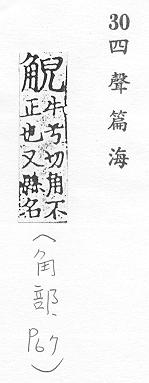 30 四聲篇海
觬
牛兮切角不
正也又縣名
(角部.P67)